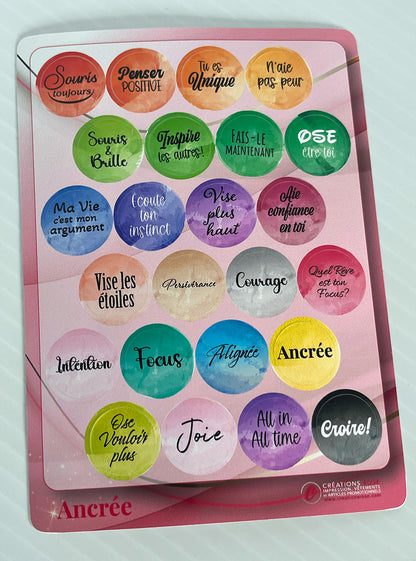 Souris
toujours
Penser
POSITIVE
Tu es
Unique
N'aie
pas peur
Souris
&
Brille
Inspire
les autres!
FAIS-LE
MAINTENANT
OSE
être toi
Ma Vie
c'est mon
argument
Écoute
ton
instinct
Vise
plus
haut
Aie
confiance
en toi
Vise les
étoiles
Persévérance
Courage
Quel Rêve
est ton
Focus?
Intention
Focus
Alignée
Ancrée
Ose
Vouloir
plus
Joie
All in
All time
Croire!
Ancrée
CRÉATIONS
IMPRESSION, VÊTEMENTS
et ARTICLES PROMOTIONNELS